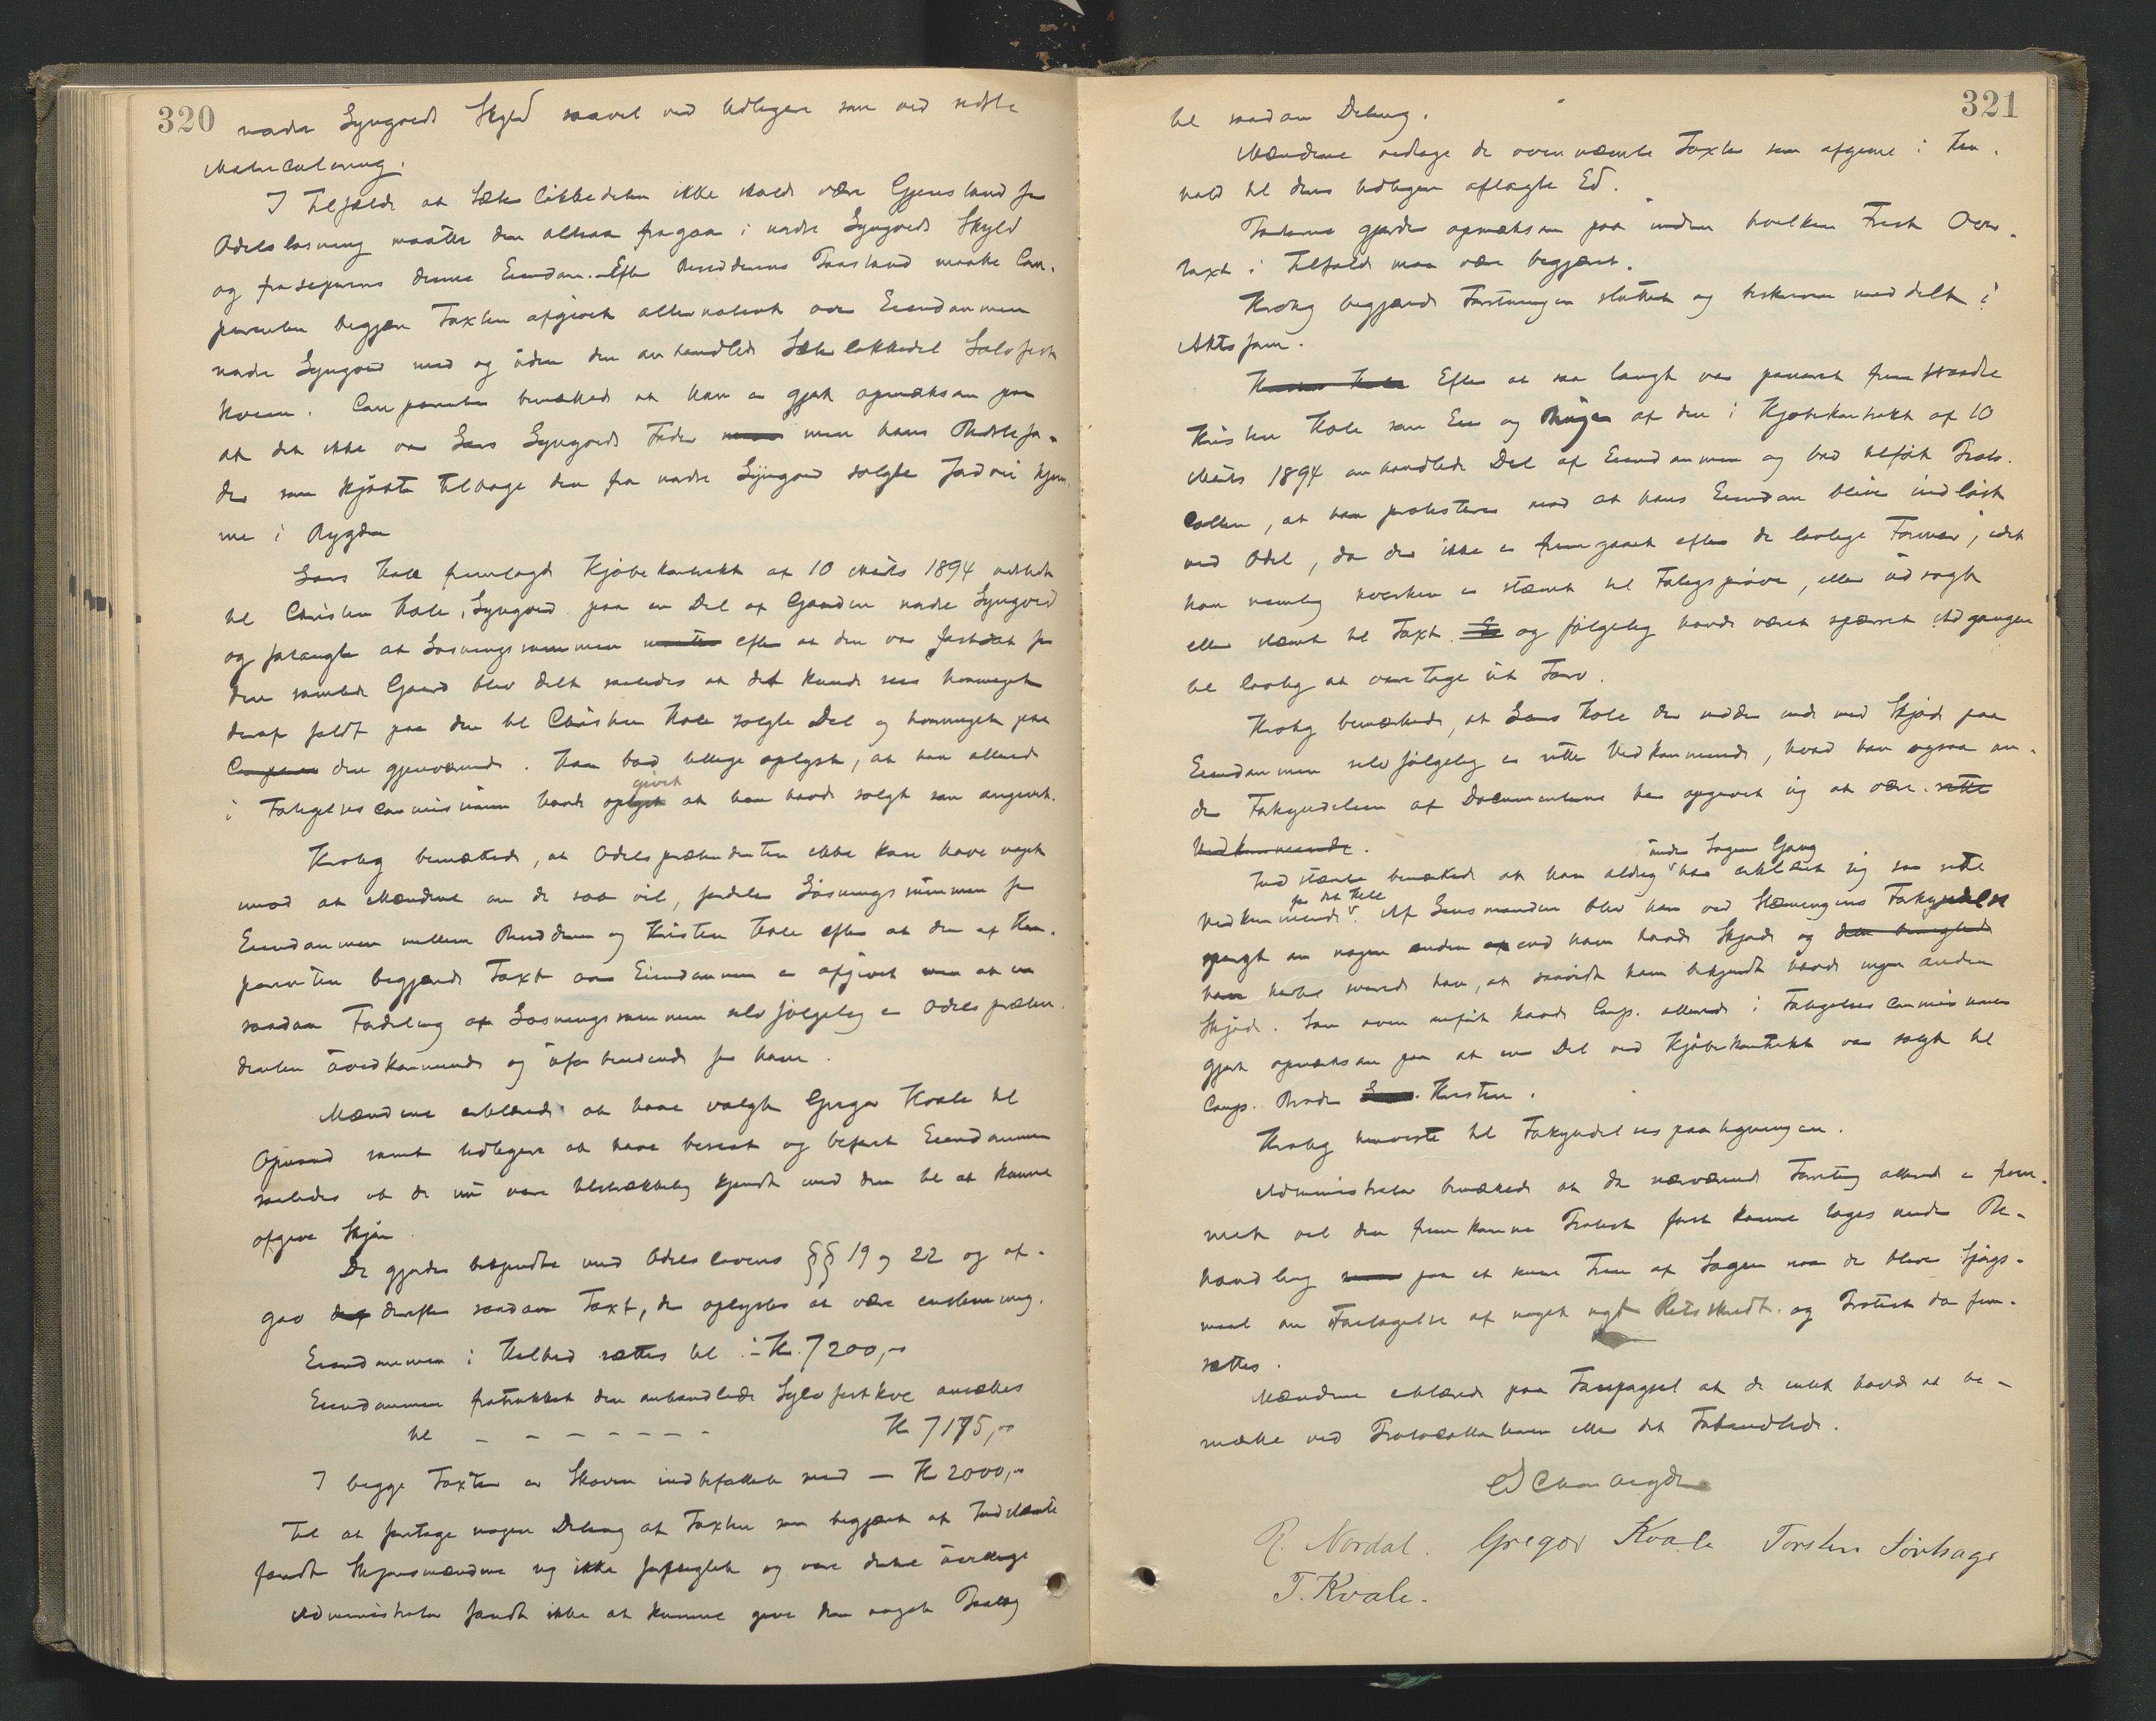 320
nordre Syngvoeds Skyld saavel ved tidligere som ved sidste
Matrikulering.
I Tilfælde at Sæterløkkedelen ikke skulde være Gjenstand for
Odelsløsning maatte den altsaa fragaa i nordre Syngvoeds Skyld
og fraseparers denne Eiendom. Efter Rigsdeens Paastand maatte Com-
parenten begjære Taxten afgivet alternativt over Eiendommen
nordre Syngvoed med og uden den omhandlede Sæterløkkedel Solvfest
Kveen. Comparenten bemærkede at han er gjort opmærksom paa
at det ikke var Lars Syngvoeds Fader men hans Bedstefa-
der som kjøbte tilbage den fra nordre Syngvoed solgte Jordvei hjem-
me i Bygden
Lars Hole fremlagde Kjøbekontrakt af 10 Marts 1894 udstedt
til Christen Hole, Syngvoed paa en Del af Gaarden nordre Syngvoed
og forlangte at Løsningssummen efter at den var fastsat for
den samlede Gaard blev delt saaledes at det kunde sees hvormeget
deraf faldt paa den til Christen Hole solgte Del og hvormeget paa
den gjenværende. Han bad tillige oplyst, at han allerede
givet
i Forligelsescommissionen havde op at han havde solgt som angivet.
Krohg bemærkede, at Odelsprætendenten ikke kan have noget
imod at Mændene om de saa vil, fordeler Løsningssummen for
Eiendommen mellem Brødrene og Kristen Hole efter at den af Kom-
parenten begjærede Taxt over Eiendommen er afgivet men at en
saadan Fordeling af Løsningssummen selvfølgelig er Odelspræten-
denten uvedkommende og uforbindende for ham.
Mændene erklærede at have valgt Gregor Kvale til
Opmand samt tidligere at have beseet og befaret Eiendommen
saaledes at de nu vare tilstrækkelig kjendt med den til at kunne
afgive Skjøn
De gjordes bekjendte med Odelslovens §§ 19 og 22 og af-
gav derefter saadan Taxt, der oplystes at være enstemmig.
Eiendommen i Helhed sættes til ÷ Kr. 7200,-
Eiendommen fratrukket den omhandlede Sylvfestkve ansættes
til - - - - - - - Kr 7175,-
I begge Taxter er Skoven indbefattet med — Kr 2000,-
Til at foretage nogen Deling af Taxten som begjæret af Indstævnte
fandt Skjønsmændene sig ikke forpligtet og vare dertil uvillige
Administrator fandt ikke at kunne give dem noget Paalæg
321
til saadan Deling.
Mændene vedtage de ovennævnte Taxter som afgivne i Hen-
hold til deres tidligere aflagte Ed.
Parterne gjordes opmærksom paa inden hvilken Frist Over-
taxt i Tilfælde maa være begjæret.
Krohg begjærede Forretningen sluttet og beskreven meddelt i
Aktsform.
Efter at saa langt var passeret fremstod
Kristen Hole som Eier og Bruger af den i Kjøbekontrakt af 10
Marts 1894 omhandlede Del af Eiendommen og bad tilført Proto-
collen, at han protesterer mod at hans Eiendom bliver indløst
ved Odel, da der ikke er fremgaaet efter de lovlige Former, idet
han nemlig hverken er stævnet til Forligsprøve, eller udsagt
eller stævnet til Taxt og følgelig havde været spærret Adgangen
til lovlig at varetage sit Tarv.
Krohg bemærkede, at Lars Hole der sidder inde med Skjøde paa
Eiendommen selvfølgelig er rette Vedkommende, hvad han ogsaa un-
der Forkyndelsen af Documenterne har opgivet sig at være.
under Sagens Gang
Indstævnte bemærkede at han aldrig har erklæret sig som rette
for det Hele
Vedkommende. Af Lensmanden blev han ved Stævningens Forkyndelse
spurgt om nogen anden end ham havde Skjøde og
hertil svarede han, at saavidt ham bekjendt havde ingen anden
Skjøde. Som oven anført havde Comp. allerede i Forligelsescommissionen
gjort opmærksom paa at en Del ved Kjøbekontrakt var solgt til
Comp. Broder Kristen.
Krohg henviste til Forkyndelsespaategningen.
Administrator bemærkede at da nærværende Forretning allerede er frem-
met vil den fremkomne Protest først kunne tages under Be-
handling paa et senere Trin af Sagen naar der bliver Spørgs-
maal om Foretagelse af noget nyt Retsskridt og Protest da frem-
sættes.
Mændene erklærede paa Forespørgsel at de intet havde at be-
mærke ved Protocollationen eller det Forhandlede.
R. Nordal. Gregor Kvale Torsten Sørhage
T. Kvale.